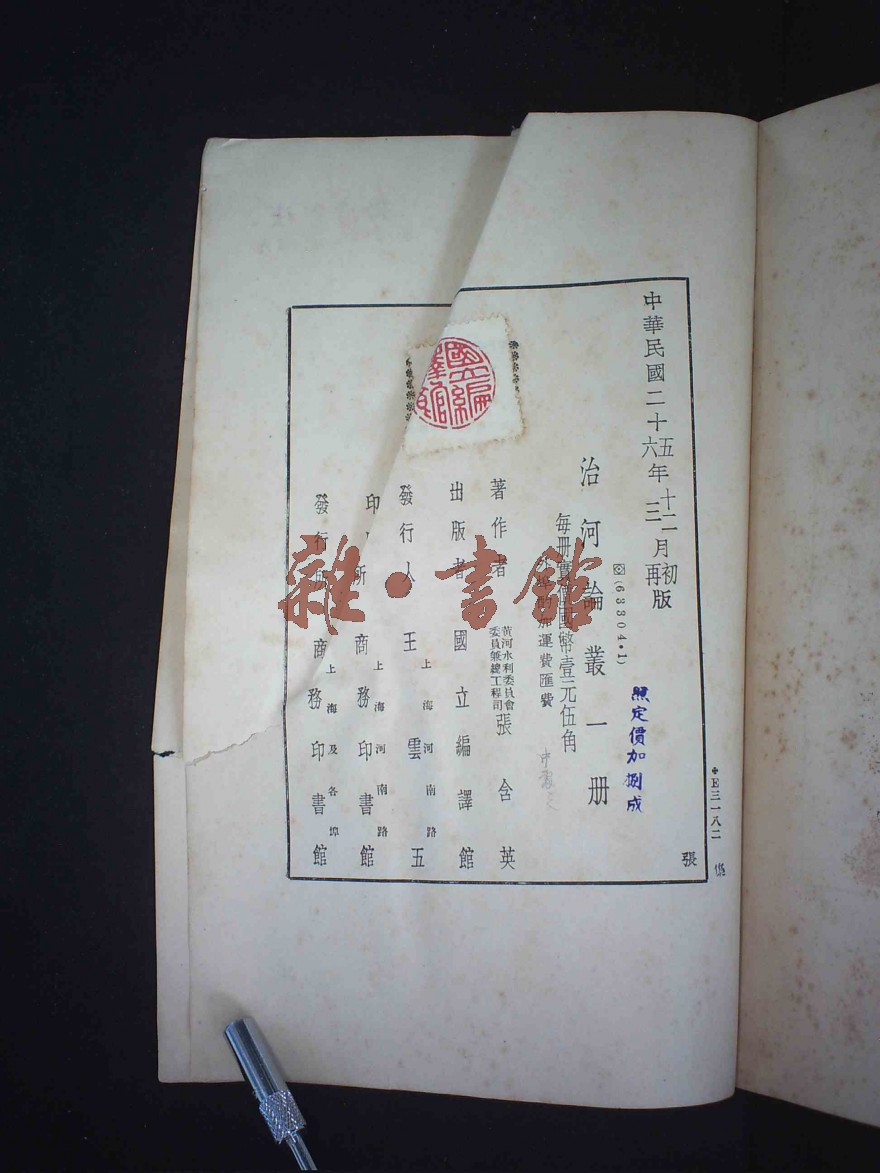 中華民國二十五年十二月初版
六 三 再
(63304·1)
治河論叢一册
照定價加捌成
每册實價國幣壹元伍角
外埠酌加運費匯費
著作者 黃河水利委員會委員兼總工程司 張含英
出版者 國立編譯館
發行人 王雲五
上海河南路
印刷所 商務印書館
上海河南路
發行所 商務印書館
上海及各埠
國立編譯館
E三一八二
張
雜·書館